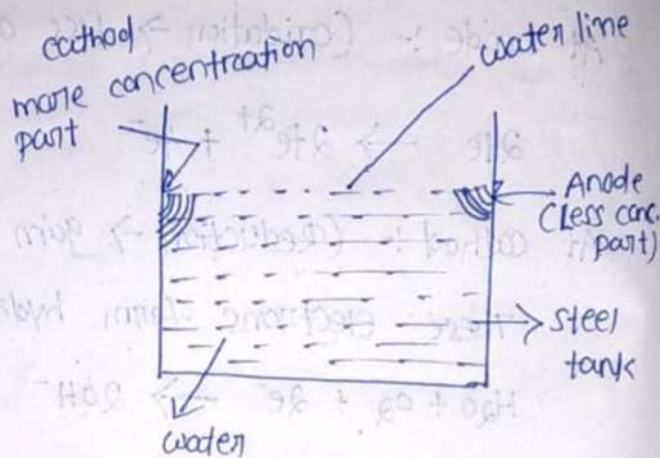 cathod
more concentration
part
water line
Anode
(Less conc.
part)
steel
tank
water